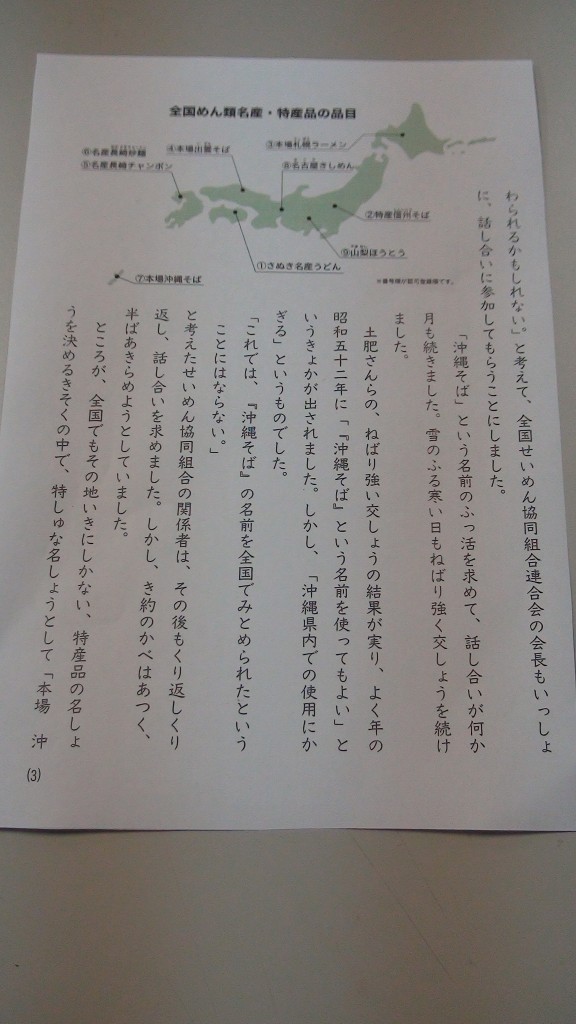 全国めん類名産・特産品の品目
③本場札幌ラーメン
④本場出雲そば
⑥名産長崎炒麺
⑤名産長崎チャンポン
⑧名古屋きしめん
②特産信州そば
⑨山梨ほうとう
①さぬき名産うどん
⑦本場沖縄そば
※番号順が認可登録順です。
わられるかもしれない。と考えて、全国せいめん協同組合連合会の会長もいっしょ
に、話し合いに参加してもらうことにしました。
「沖縄そば」という名前のふっ活を求めて、話し合いが何か
月も続きました。雪のふる寒い日もねばり強く交しょうを続け
ました。
土肥さんらの、ねばり強い交しょうの結果が実り、よく年の
昭和五十二年に「『沖縄そば』という名前を使ってもよい」と
いうきょかが出されました。しかし、「沖縄県内での使用にか
ぎる」というものでした。
「これでは、『沖縄そば』の名前を全国でみとめられたという
ことにはならない。」
と考えたせいめん協同組合の関係者は、その後もくり返しくり
返し、話し合いを求めました。しかし、き約のかべはあつく、
半ばあきらめようとしていました。
ところが、全国でもその地いきにしかない、特産品の名しょ
うを決めるきそくの中で、特しゅな名しょうとして「本場 沖
(3)